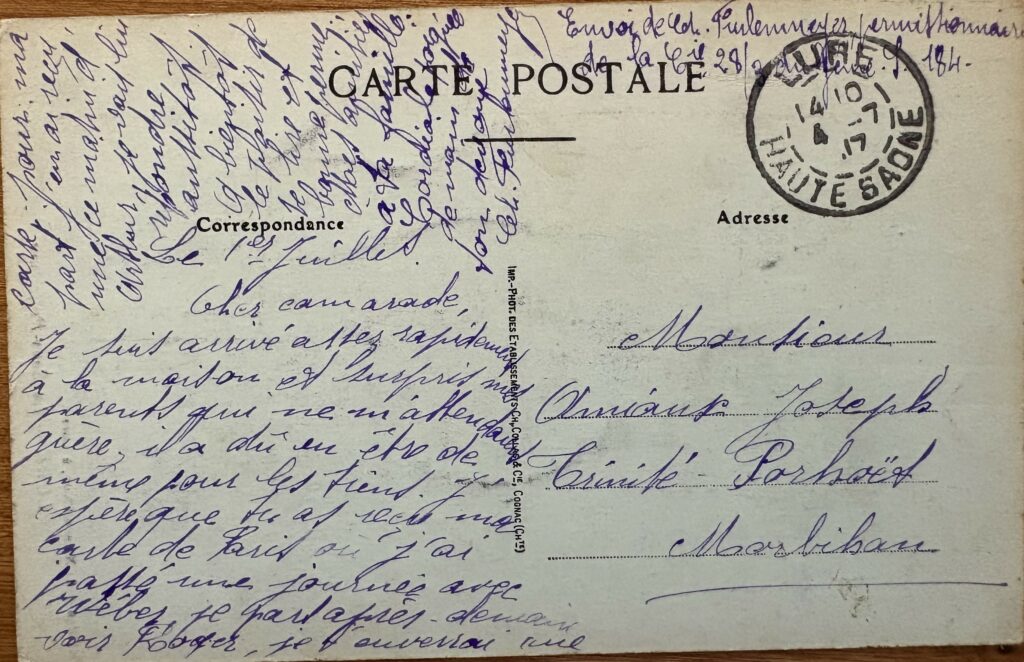 CARTE POSTALE
Envoi de Ed. permissionnaire
de la Cie 28/ S. 184.
LURE
14 10
4 -7
17
HAUTE SAONE
Correspondance
Adresse
Le 1er Juillet.
Cher camarade,
Je suis arrivé assez rapidement
à la maison et surpris mes
parents qui ne m'attendaient
guère, il a dû en être de
même pour les tiens. J'
espère que tu as reçu ma
carte de Paris où j'ai
passé une journée avec
Wéber, je pars après-demain
voir Roger, je t'enverrai une
carte pour ma
part j'en ai reçu
une ce matin d'
Arthur, je vais lui
répondre
aussitôt
A bientôt
le plaisir de
te lire et
bonne perme
chez
à ta famille.
Cordiale poig
de main
ton
Ed.
IMP.-PHOT. DES ETABLISSEMENTS CH. COLLAS & CIE, COGNAC (CHTE)
Monsieur
Amiaux Joseph
Trinité-Porhoët
Morbihan